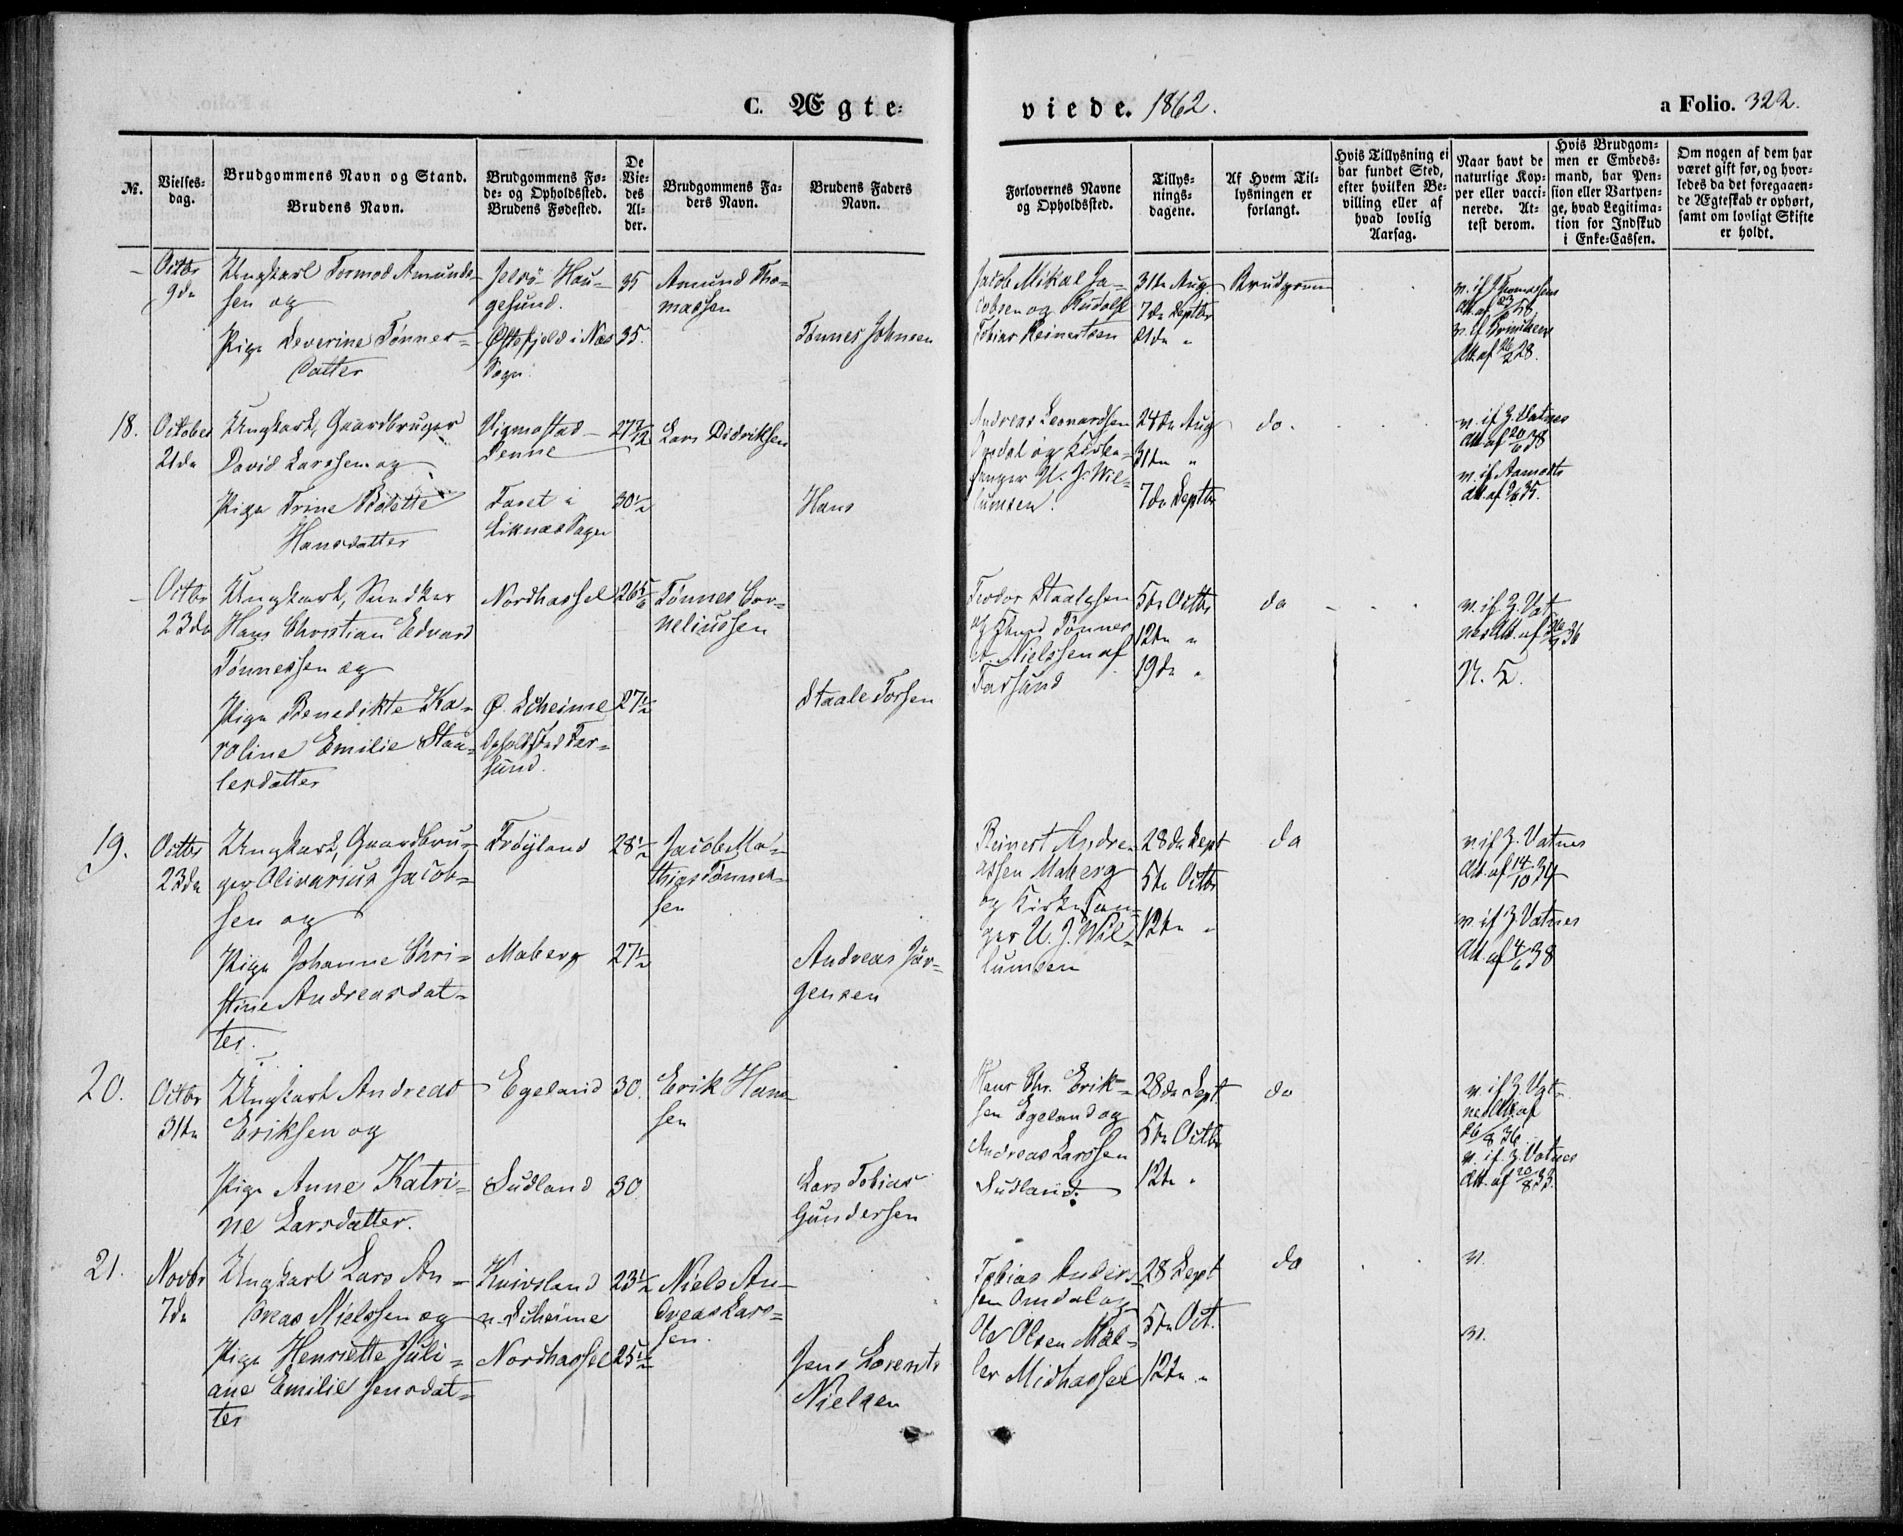 C. Ægte-
viede. 1862.
a Folio. 322.
№.
Vielses-
dag.
Brudgommens Navn og Stand.
Brudens Navn.
Brudgommens Fø-
de- og Opholdssted.
Brudens Fødested.
De
Vie-
des
Al-
der.
Brudgommens Fa-
ders Navn.
Brudens Faders
Navn.
Forlovernes Navne
og Opholdssted.
Tillys-
nings-
dagene.
Af Hvem Til-
lysningen er
forlangt.
Hvis Tillysning ei
har fundet Sted,
efter hvilken Be-
villing eller af
hvad lovlig
Aarsag.
Naar havt de
naturlige Kop-
per eller vacci-
nerede. At-
test derom.
Hvis Brudgom-
men er Embeds-
mand, har Pen-
sion eller Vartpen-
ge, hvad Legitima-
tion for Indskud
i Enke-Cassen.
Om nogen af dem har
været gift før, og hvor-
ledes da det foregaaen-
de Ægteskab er ophørt,
samt om lovligt Skifte
er holdt.
Octbr
9de
Ungkarl Tormod Amund-
sen og
Pige Severine Tønnes-
datter
Hau-
gesund.
i Næs
Sogn.
35
35.
Amund Tho-
massen
Tønnes Johnsen
Jacob Mikal Ja-
cobsen og Rudolf
Tobias Reinertsen
31te Aug.
7de Septbr
21de "
Brudgom
v. if
Att. af
v. if
Att. af 28.
18.
October
21de
Ungkarl, Gaardbruger
David Larssen og
Pige Trine Bolette
Hansdatter
Vigmostad
Penne
i
Liknæs Sogn
30½
Lars Didriksen
Hans
Andreas Leonardsen
og Kirke-
sanger U. J. Wil-
lumsen.
24de Aug
31te "
7de Septbr
do.
v. if Z. Vatnes
Att. af 20/6 38
v. if Aamodts
Att. af 35.
Octbr
23de
Ungkarl,
Hans Christian Edvard
Tønnessen og
Pige Benedikte Ka-
roline Emilie Staa-
lesdatter
Nordhassel
Ø. Scheime
Far-
sund.
26 5/6
27½
Tønnes Cor-
neliussen
Staale Torsen
Teodor Staalesen
og Tønnes
Nielssen af
Farsund
5te Octbr
12te "
19de "
do
v. if Z. Vat
nes Att. af 36
N. K.
19.
Octbr
23de
Ungkarl, Gaardbru-
ger Olivarius Jacob-
sen og
Pige Johanne Chri-
stine Andreasdat-
ter.
Frøyland
Maberg
28½
27½
Jacob Ma-
thias Tønnes-
sen
Andreas Jør-
gensen
Reinert Andre-
assen Maberg
og Kirkesan-
ger U. J. Wil-
lumsen
28de Sept
5te Octbr
12te "
do
v. if Z. Vatnes
Att. af 14/10 34
v. if Z. Vatnes
Att. af 4/6 38
20.
Octbr
31te
Ungkarl Andreas
Eriksen og
Pige Anne Katri-
ne Larsdatter.
Egeland
Sudland
30.
30.
Erik Han-
sen
Lars Tobias
Gundersen
Hans Chr. Erik-
sen Egeland og
Andreas Larssen
Sudland.
28de Sept
5te Octbr
12te "
do
v. if Z. Vat-
nes Att. af
26/8 36.
v. if. Z. Vatnes
Att. af 20/8 33.
21.
Novbr
7de
Ungkarl Lars An-
dreas Nielssen og
Pige Henriette Juli-
ane Emilie Jensdat-
ter
Kvivsland
n. Scheime
Nordhassel
23½
25½
Niels An-
dreas Lars-
sen.
Jens Lorents
Nielsen
Tobias Anders-
sen Omdal og
Ole Olsen Møl-
ler Midhassel
28 Sept
5te Oct.
12te "
do
v.
v.